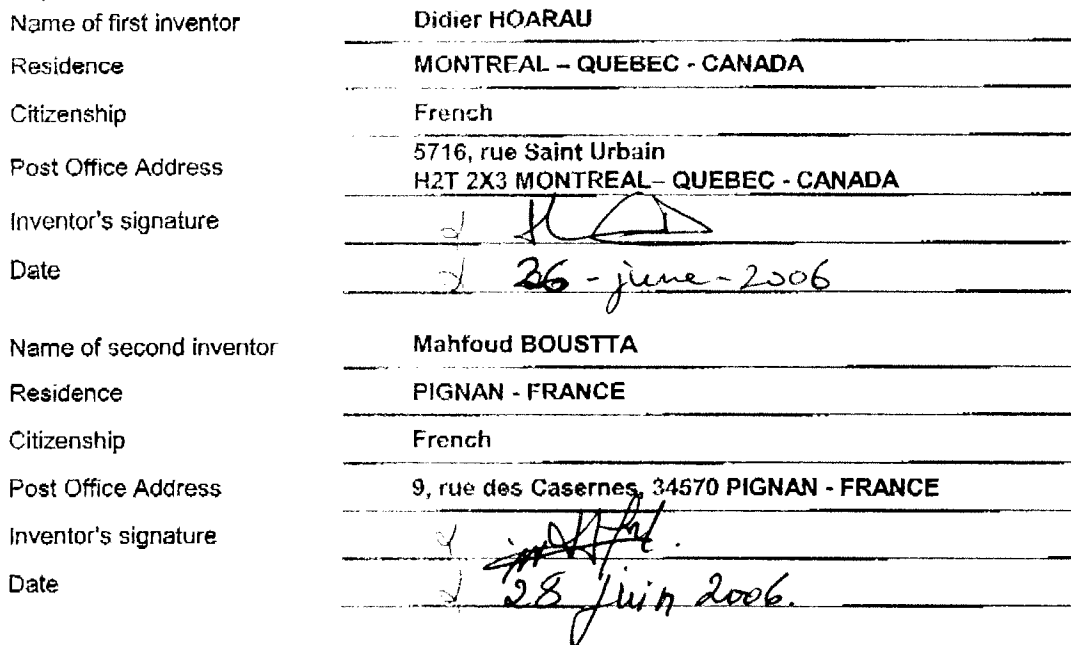 Name of first inventor Didier HOARAU
Residence MONTREAL – QUEBEC - CANADA
Citizenship French
Post Office Address 5716, rue Saint Urbain
H2T 2X3 MONTREAL– QUEBEC - CANADA
Inventor's signature
Date 26 - june - 2006
Name of second inventor Mahfoud BOUSTTA
Residence PIGNAN - FRANCE
Citizenship French
Post Office Address 9, rue des Casernes, 34570 PIGNAN - FRANCE
Inventor's signature
Date 28 juin 2006.